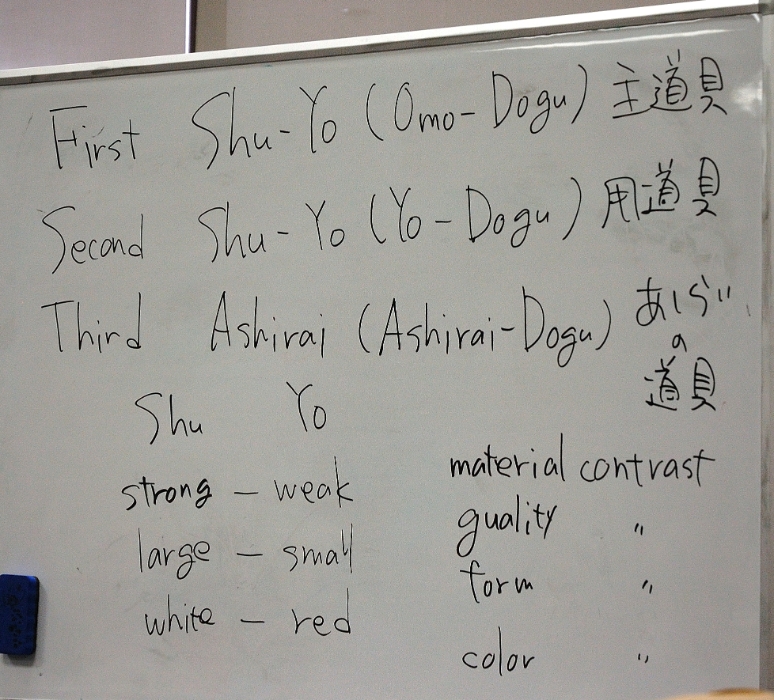 First Shu-Yo (Omo-Dogu) 主道具
Second Shu-Yo (Yo-Dogu) 用道具
Third Ashirai (Ashirai-Dogu) あしらい
の
道具
Shu Yo
strong - weak
large - small
white - red
material contrast
quality "
form "
color "